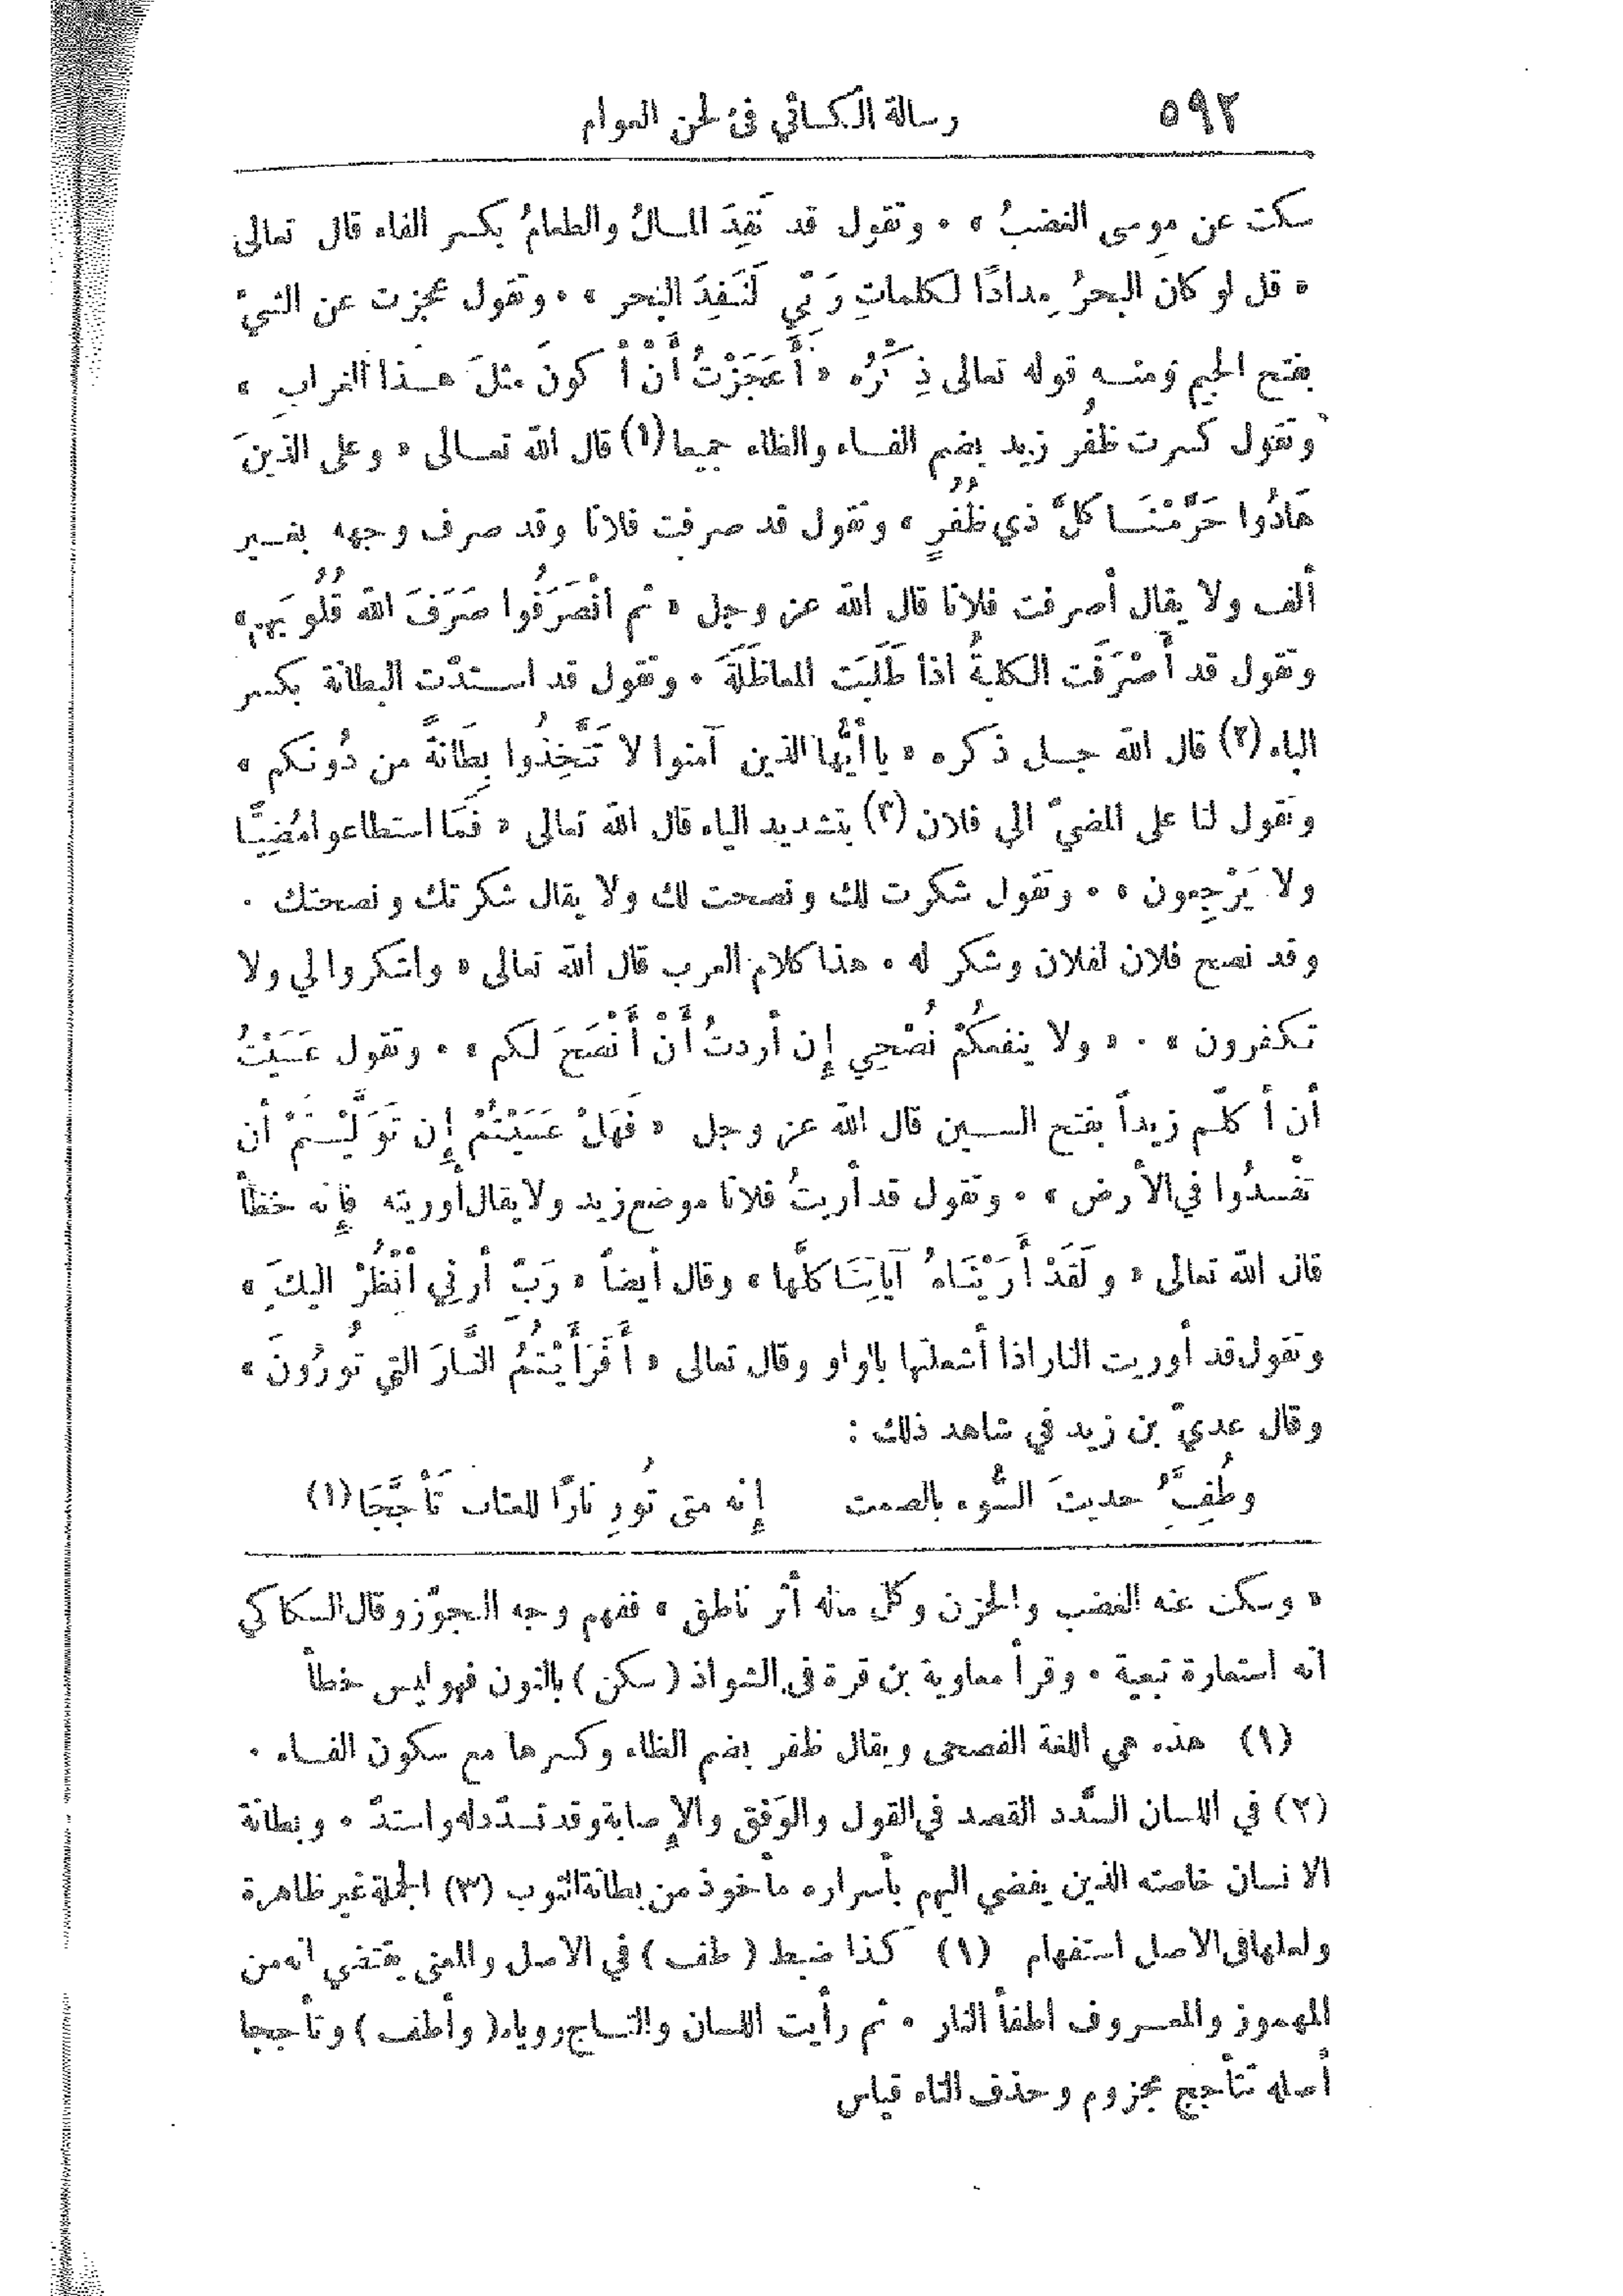 ٥٩٢ رسالة الكسائي فى لحن العوام
سكت عن موسى الغضبُ » . وتقول قد نَفِدَ المـالُ والطعامُ بكسر الفاء قال تعالى
« قل لو كان البحرُ مِدادًا لكلماتِ رَبّي لَنَفِدَ البحر » . وتقول عجزت عن الشيْ
بفتح الجيم ومنـه قوله تعالى ذِكْرُه « أَعَجَزْتُ أَنْ أْ كونَ مثلَ هـذا الغراب »
وتقول كسرت ظفُر زيد بضم الفـاء والظاء جميعا (١) قال الله تعـالى « وعلى الذينَ
هَادُوا حَرَّمْنَـا كلَّ ذي ظُفُرٍ » وتقول قد صرفت فلانا وقد صرف وجهه بغـير
ألف ولا يقال أصرفت فلانا قال الله عز وجل « ثم انْصَرَفُوا صَرَفَ الله قُلُوبَهم »
وتقول قد أَصْرَفَت الكلبةُ اذا طَلَبَت المعاظَلَةَ . وتقول قد استـدّت البطانة بكسر
الباء (٢) قال الله جـل ذكره « يا أَيُّها الذين آمنوا لا تَتَّخِذُوا بِطَانةً من دُونكم »
وتقول لنا على المضيّ الي فلان (٣) بتشديد الياء قال الله تعالى « فَمَا استطاعوا مُضِيًّا
ولا يَرْجِعون » . وتقول شكرت لك ونصحت لك ولا يقال شكرتك ونصحتك .
وقد نصح فلان لفلان وشكر له . هذا كلام العرب قال الله تعالى « واشكروا لي ولا
تكفرون » . « ولا ينفعكُمْ نُصْحِي إِن أردتُ أَنْ أَنْصَحَ لكم » . وتقول عَسَيْتُ
أن أ كلّم زيداً بفتح السـين قال الله عز وجل « فَهَلْ عَسَيْتُمْ إِن تَوَلَّيْـتُمْ أن
تفْسدُوا في الأرض » . وتقول قد أريتُ فلانا موضع زيد ولا يقال أوريته فإنه خطأ
قال الله تعالى « ولَقَدْ أَرَيْنَـاهُ آيَاتِنَـا كلَّها » وقال أيضاً « رَبّ أرنِي أنْظُرْ اليكَ »
وتقول قد أوريت النار اذا أشعلتها بالواو وقال تعالى « أَفَرَأَيْتُمُ النَّـارَ التي تُورُونَ »
وقال عديّ بن زيد في شاهد ذلك :
وطُفِّ حديثَ السُّوء بالصمت إِنه متى تُورِ نارًا للعتاب تَأَجَّجَا (١)
« وسكت عنه الغضب والحزن وكل ماله أثر ناطق » ففهم وجه التجوّز وقال السكاكي
انه استعارة تبعية . وقرأ معاوية بن قرة فى الشواذ ( سكن ) بالنون فهو ليس خطأ
(١) هذه هي اللغة الفصحى ويقال ظفر بضم الظاء وكسرها مع سكون الفـاء .
(٢) في اللسان السَّدد القصد في القول والوَفق والإِصابة وقد تسدّد له واستدّ . وبطانة
الانسان خاصته الذين يفضي اليهم بأسراره مأخوذ من بطانة الثوب (٣) الجملة غير ظاهرة
ولعلها فى الاصل استفهام (١) كذا ضبط ( طف ) في الاصل والمعنى يقتضي انه من
المهموز والمعـروف اطفأ النار . ثم رأيت اللسان والتـاج روياه ( وأطف ) وتأججا
أصله تتأجج مجزوم وحذف التاء قياس